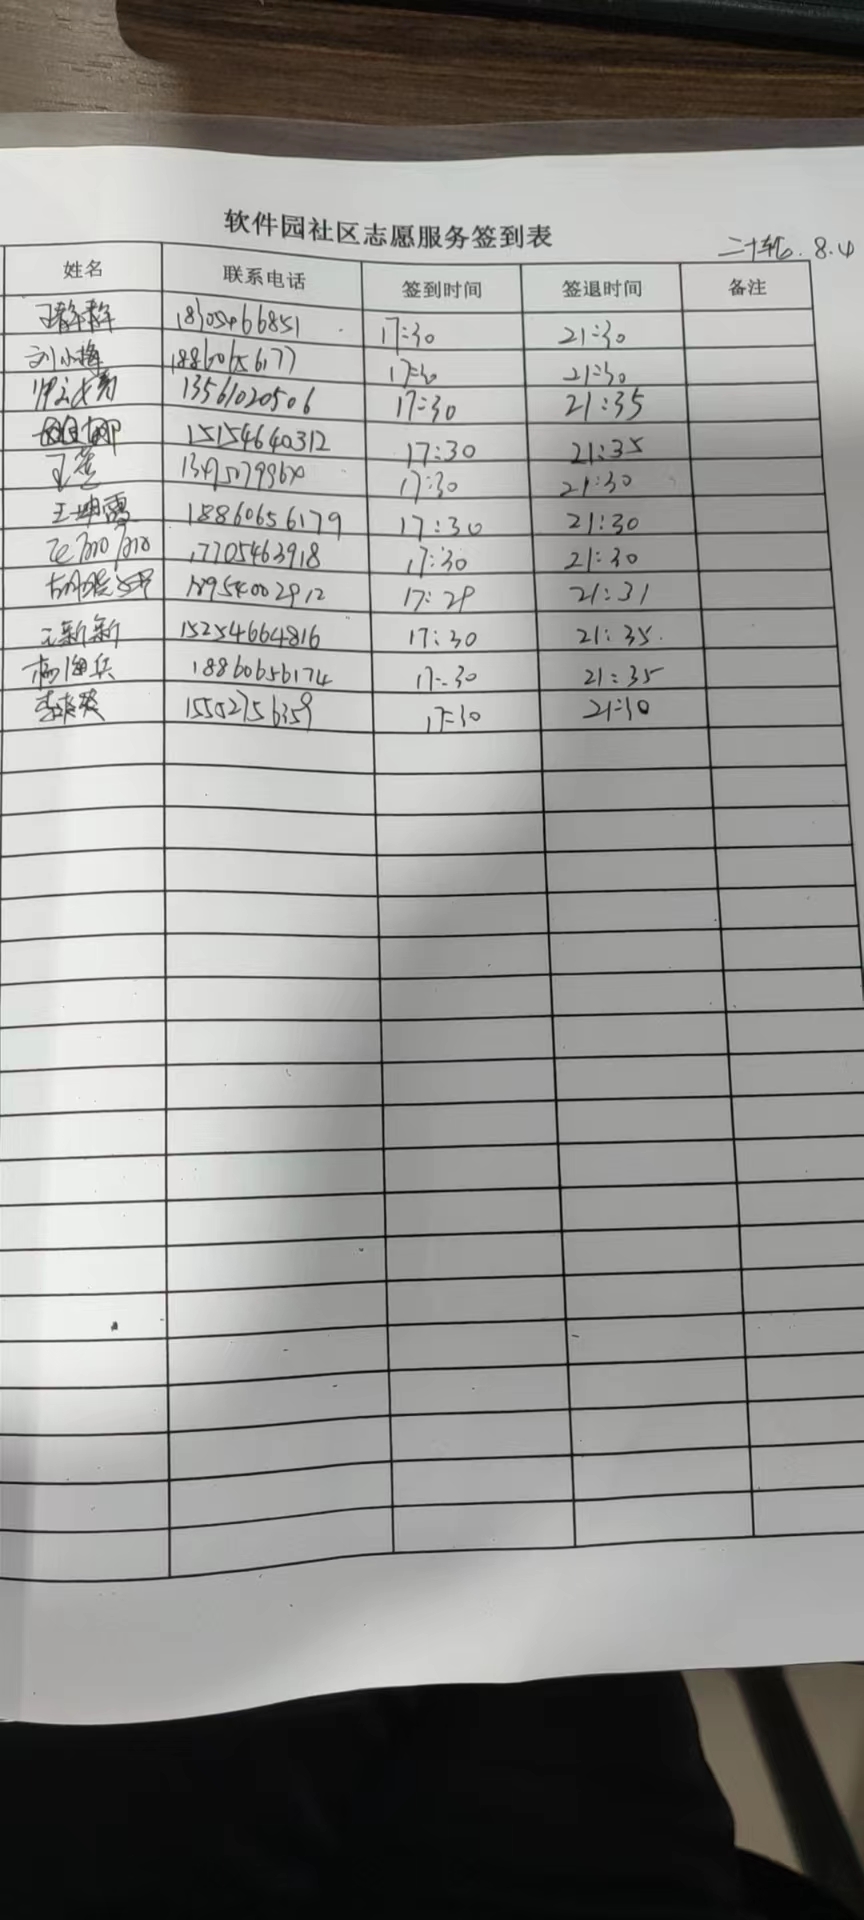 软件园社区志愿服务签到表
二十轮. 8.4
姓名 联系电话 签到时间 签退时间 备注
王静静 18305466851 17:30 21:30
刘小梅 18860656177 17:30 21:30
13561020506 17:30 21:35
15154640312 17:30 21:35
17:30 21:30
王坤霞 18860656179 17:30 21:30
17705463918 17:30 21:30
18954002912 17:29 21:31
新新 15254664816 17:30 21:35
杨海兵 18860656174 17:30 21:35
李英英 15552756359 17:30 21:30